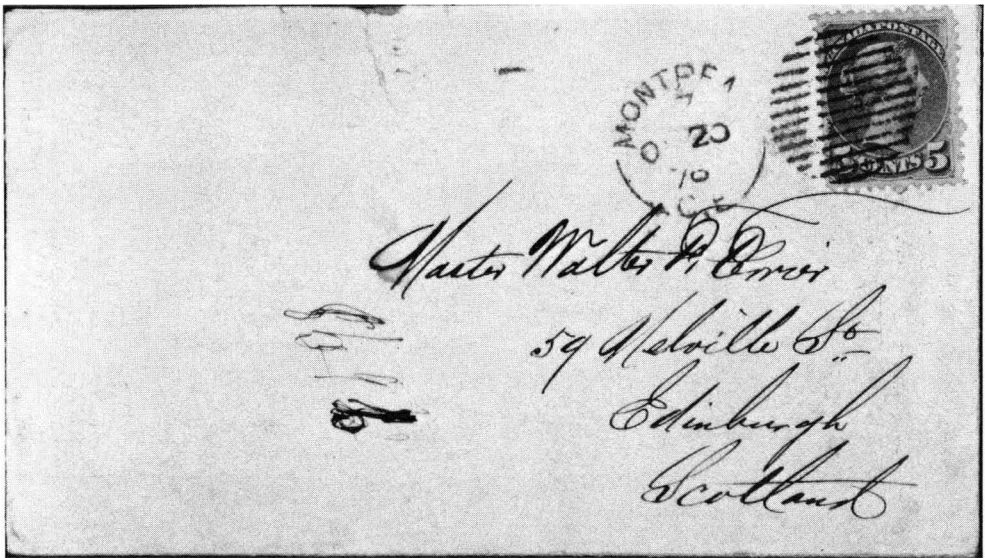 CANADA POSTAGE
CENTS 5
MONTREA
20
76
Master Walter P.
59 Melville St
Edinburgh
Scotland